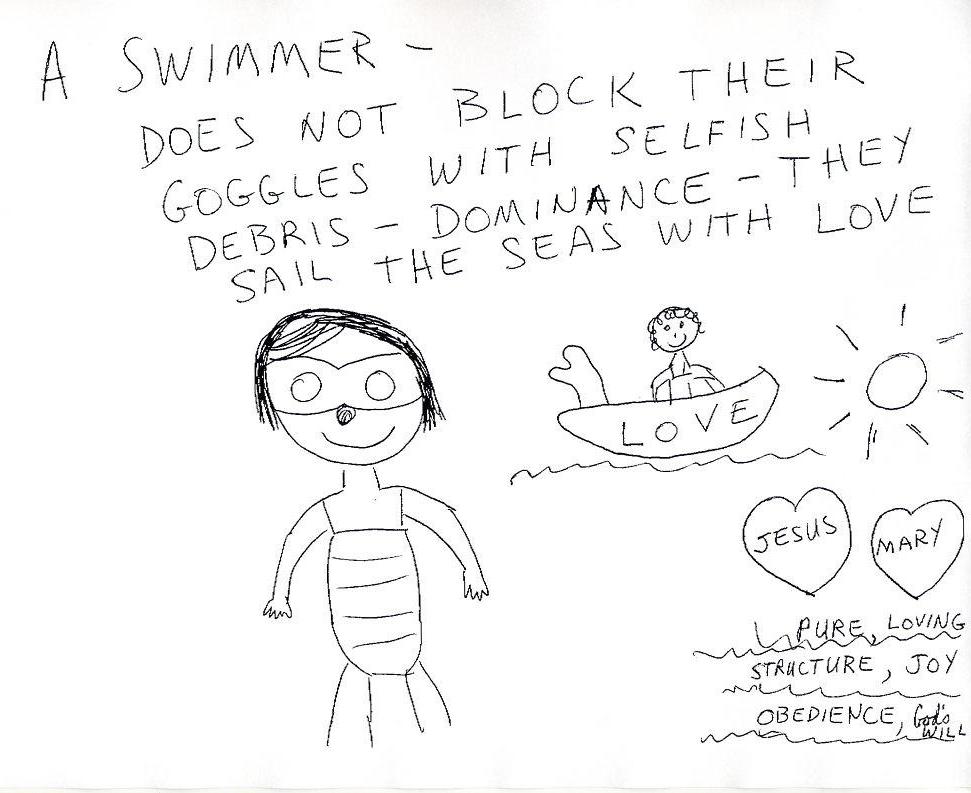 A SWIMMER -
DOES NOT BLOCK THEIR
GOGGLES WITH SELFISH
DEBRIS - DOMINANCE - THEY
SAIL THE SEAS WITH LOVE
LOVE
JESUS MARY
PURE, LOVING
STRUCTURE, JOY
OBEDIENCE, God's
WILL